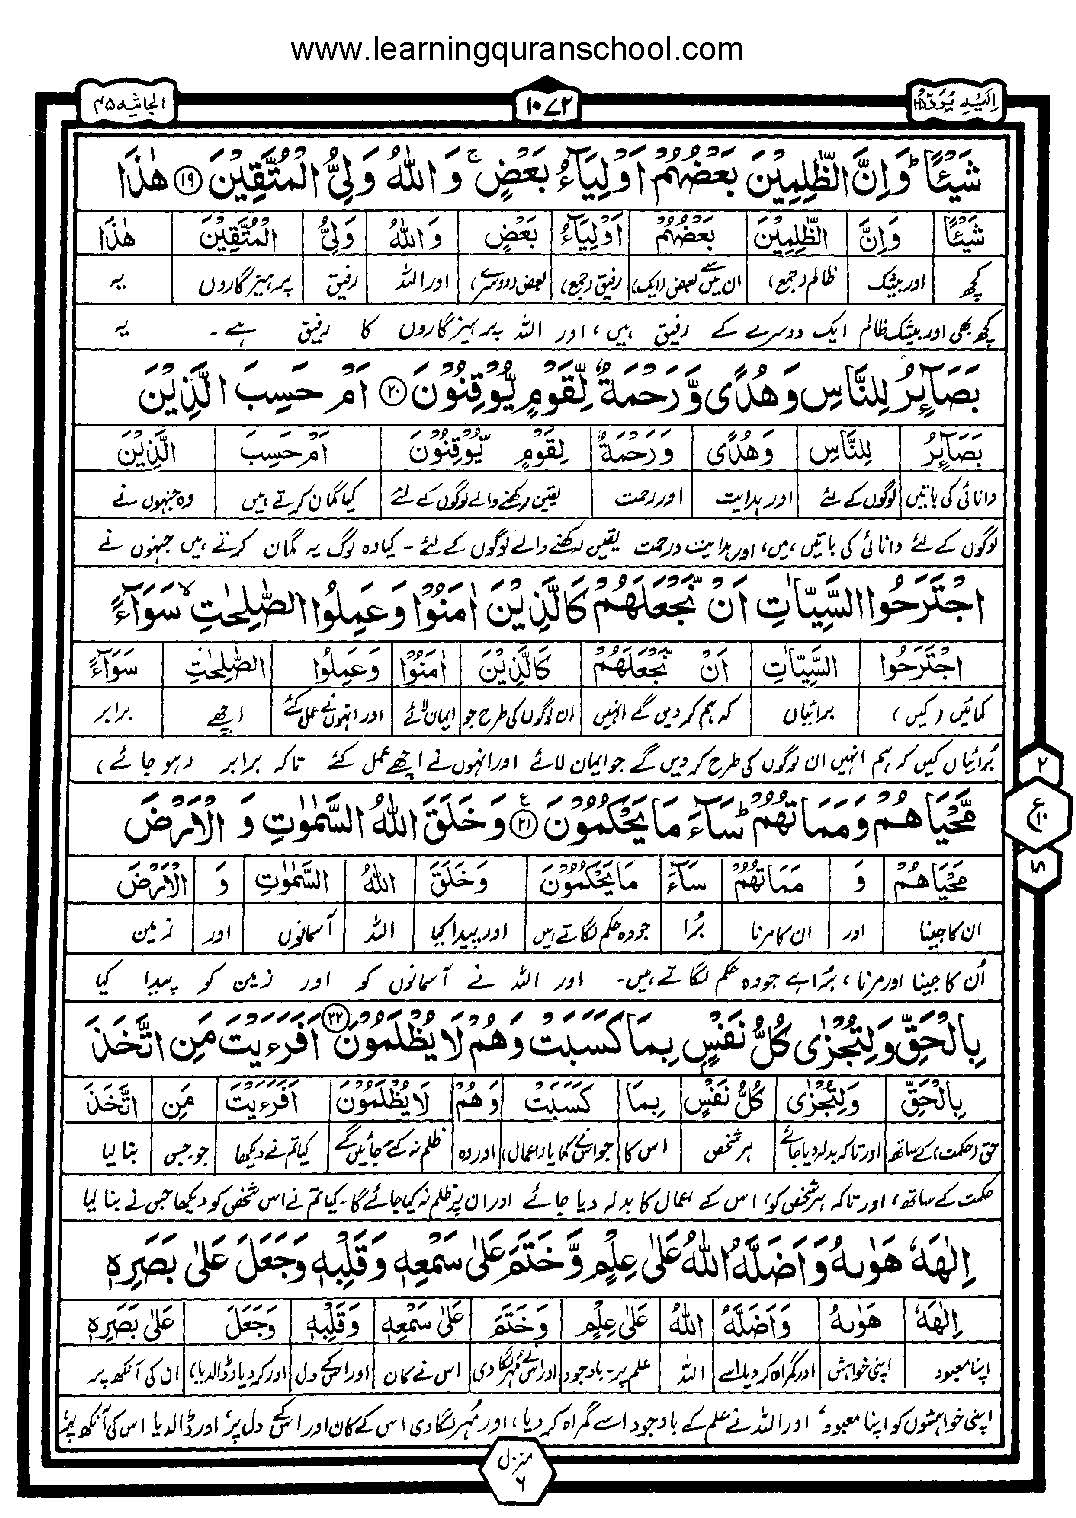 www.learningquranschool.com
اليه يرد ٢٥
١٠٧٢
الجاثيه ٤٥
شَيْـًٔا ؕ وَ اِنَّ الظّٰلِمِيْنَ بَعْضُهُمْ اَوْلِيَآءُ بَعْضٍ ۚ وَ اللّٰهُ وَلِيُّ الْمُتَّقِيْنَ ١٩ هٰذَا
شَيْـًٔا وَ اِنَّ الظّٰلِمِيْنَ بَعْضُهُمْ اَوْلِيَآءُ بَعْضٍ وَ اللّٰهُ وَلِيُّ الْمُتَّقِيْنَ هٰذَا
کچھ اور بیشک ظالم (جمع) ان میں سے بعض (ایک) رفیق (جمع) بعض (دوسرے) اور اللہ رفیق پرہیزگاروں یہ
کچھ بھی اور بیشک ظالم ایک دوسرے کے رفیق ہیں، اور اللہ پرہیزگاروں کا رفیق ہے۔ یہ
بَصَآئِرُ لِلنَّاسِ وَ هُدًى وَّ رَحْمَةٌ لِّقَوْمٍ يُّوْقِنُوْنَ ٢٠ اَمْ حَسِبَ الَّذِيْنَ
بَصَآئِرُ لِلنَّاسِ وَ هُدًى وَ رَحْمَةٌ لِقَوْمٍ يُّوْقِنُوْنَ اَمْ حَسِبَ الَّذِيْنَ
دانائی کی باتیں لوگوں کے لئے اور ہدایت اور رحمت یقین رکھنے والے لوگوں کے لئے کیا گمان کرتے ہیں وہ جنہوں نے
لوگوں کے لئے دانائی کی باتیں ہیں، اور ہدایت و رحمت یقین رکھنے والے لوگوں کے لئے۔ کیا وہ لوگ یہ گمان کرتے ہیں جنہوں نے
اجْتَرَحُوا السَّيِّاٰتِ اَنْ نَّجْعَلَهُمْ كَالَّذِيْنَ اٰمَنُوْا وَ عَمِلُوا الصّٰلِحٰتِ ۙ سَوَآءً
اجْتَرَحُوا السَّيِّاٰتِ اَنْ نَّجْعَلَهُمْ كَالَّذِيْنَ اٰمَنُوْا وَ عَمِلُوا الصّٰلِحٰتِ سَوَآءً
کمائیں (کیں) برائیاں کہ ہم کر دیں گے انہیں ان لوگوں کی طرح جو ایمان لائے اور انہوں نے عمل کئے اچھے برابر
برائیاں کیں کہ ہم انہیں ان لوگوں کی طرح کر دیں گے جو ایمان لائے اور انہوں نے اچھے عمل کئے تاکہ برابر (ہو جائے)
مَّحْيَاهُمْ وَ مَمَاتُهُمْ ؕ سَآءَ مَا يَحْكُمُوْنَ ٢١ وَ خَلَقَ اللّٰهُ السَّمٰوٰتِ وَ الْاَرْضَ
مَحْيَاهُمْ وَ مَمَاتُهُمْ سَآءَ مَا يَحْكُمُوْنَ وَ خَلَقَ اللّٰهُ السَّمٰوٰتِ وَ الْاَرْضَ
ان کا جینا اور ان کا مرنا برا جو وہ حکم لگاتے ہیں اور پیدا کیا اللہ آسمانوں اور زمین
ان کا جینا اور مرنا، برا ہے جو وہ حکم لگاتے ہیں۔ اور اللہ نے آسمانوں کو اور زمین کو پیدا کیا
بِالْحَقِّ وَ لِتُجْزٰى كُلُّ نَفْسٍۭ بِمَا كَسَبَتْ وَ هُمْ لَا يُظْلَمُوْنَ ٢٢ اَفَرَءَيْتَ مَنِ اتَّخَذَ
بِالْحَقِّ وَ لِتُجْزٰى كُلُّ نَفْسٍ بِمَا كَسَبَتْ وَ هُمْ لَا يُظْلَمُوْنَ اَفَرَءَيْتَ مَنِ اتَّخَذَ
حق (حکمت) کے ساتھ اور تاکہ بدلہ دیا جائے ہر شخص اس کا جو اس نے کمایا (اعمال) اور وہ ظلم نہ کئے جائیں گے کیا تم نے دیکھا جو جس بنا لیا
حکمت کے ساتھ، اور تاکہ ہر شخص کو اس کے اعمال کا بدلہ دیا جائے اور ان پر ظلم نہ کیا جائے گا۔ کیا تم نے اس شخص کو دیکھا جس نے بنا لیا
اِلٰهَهٗ هَوٰىهُ وَ اَضَلَّهُ اللّٰهُ عَلٰى عِلْمٍ وَّ خَتَمَ عَلٰى سَمْعِهٖ وَ قَلْبِهٖ وَ جَعَلَ عَلٰى بَصَرِهٖ
اِلٰهَهٗ هَوٰىهُ وَ اَضَلَّهُ اللّٰهُ عَلٰى عِلْمٍ وَ خَتَمَ عَلٰى سَمْعِهٖ وَ قَلْبِهٖ وَ جَعَلَ عَلٰى بَصَرِهٖ
اپنا معبود اپنی خواہش اور گمراہ کر دیا اسے اللہ علم پر۔ باوجود اور اس نے مہر لگا دی اس نے کان اور اس کے دل اور کر دیا (ڈالدیا) اس کی آنکھ پر
اپنی خواہشوں کو اپنا معبود، اور اللہ نے علم کے باوجود اسے گمراہ کر دیا، اور مہر لگا دی اس کے کان اور اس کے دل پر، اور ڈال دیا اس کی آنکھ پر
٢
ع ١٠
١٨
منزل
٦